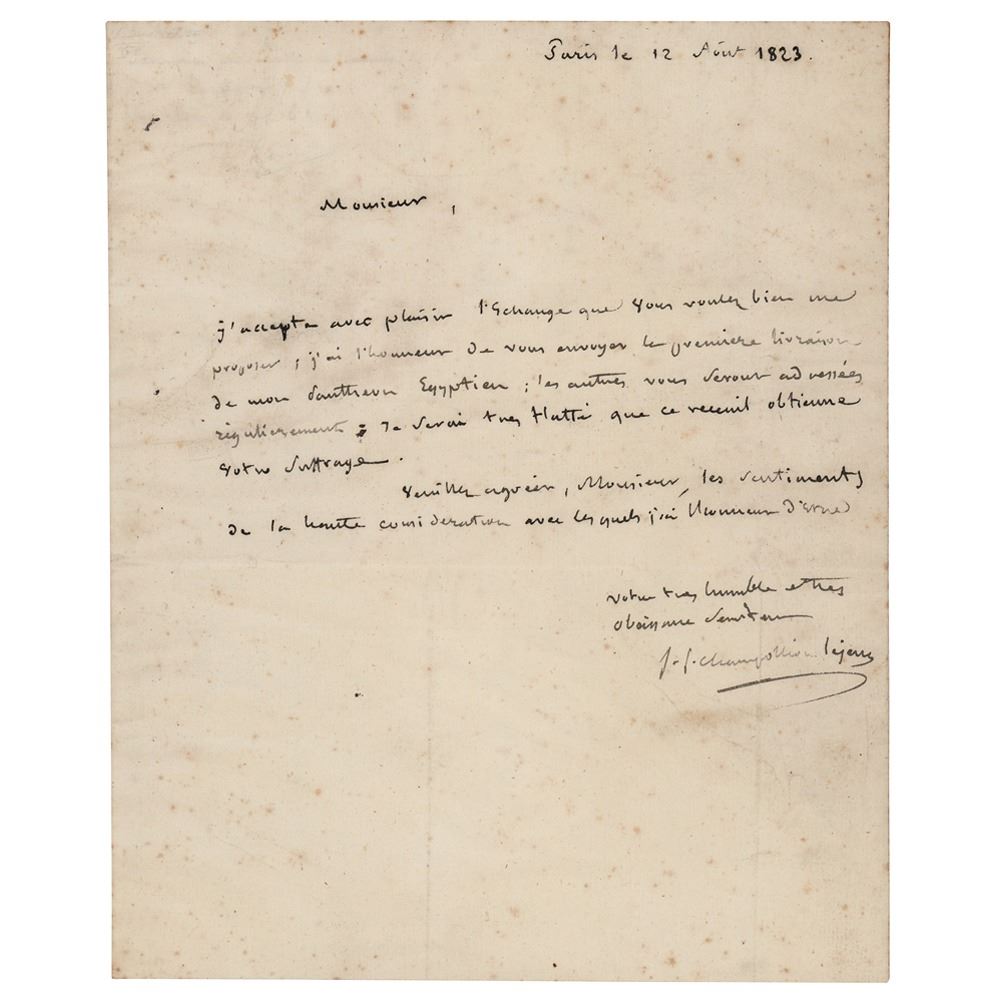 Paris le 12 Août 1823.
Monsieur,
j'accepte avec plaisir l'Echange que vous voulez bien me
proposer ; j'ai l'honneur de vous envoyer la premiere livraison
de mon Panthéon Egyptien ; les autres vous seront adressées
régulierement ; Je serai tres flatté que ce recueil obtienne
votre suffrage.
Veuillez agréer, Monsieur, les sentiments
de la haute consideration avec lesquels j'ai l'honneur d'Etre
votre tres humble et tres
obéissant serviteur
J. f. champollion le jeune